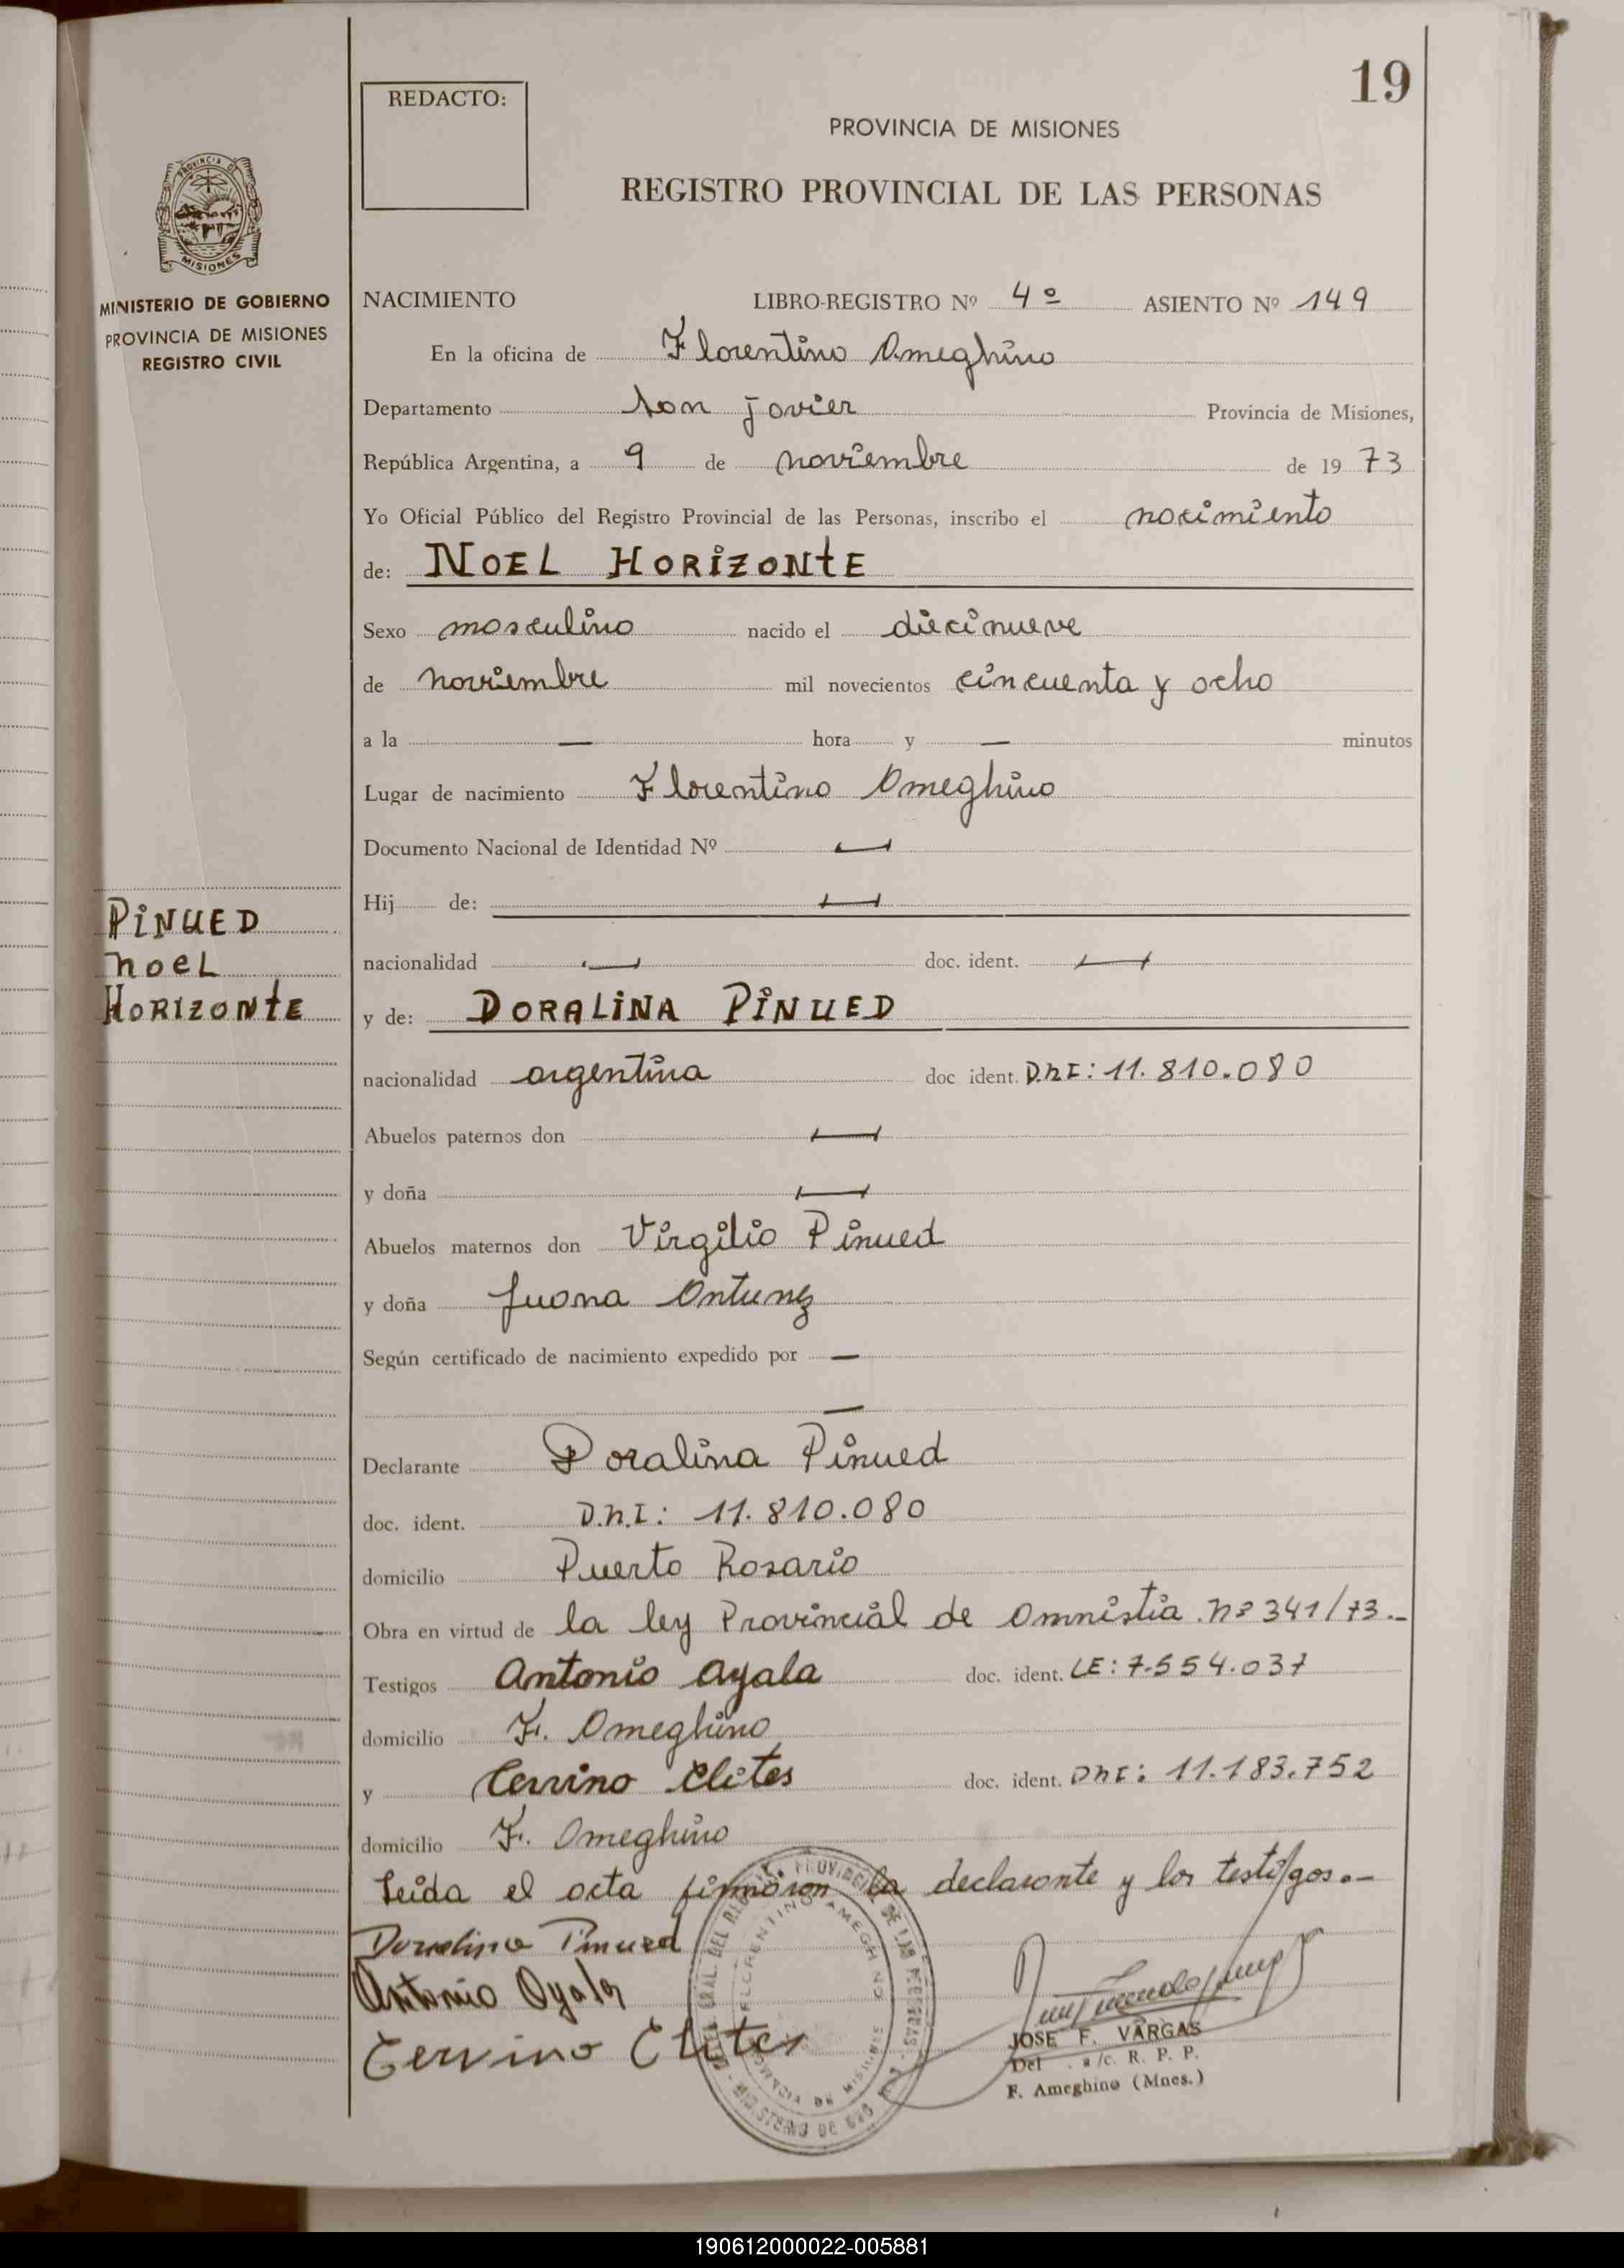 19
REDACTO:
PROVINCIA DE MISIONES
REGISTRO PROVINCIAL DE LAS PERSONAS
PROVINCIA DE
MISIONES
MINISTERIO DE GOBIERNO
PROVINCIA DE MISIONES
REGISTRO CIVIL
NACIMIENTO LIBRO-REGISTRO Nº 4º ASIENTO Nº 149
En la oficina de Florentino Ameghino
Departamento San Javier Provincia de Misiones,
República Argentina, a 9 de noviembre de 19 73
Yo Oficial Público del Registro Provincial de las Personas, inscribo el nacimiento
de: NOEL HORIZONTE
Sexo masculino nacido el diecinueve
de noviembre mil novecientos cincuenta y ocho
a la — hora y — minutos
Lugar de nacimiento Florentino Ameghino
Documento Nacional de Identidad Nº —
Hij de: —
nacionalidad — doc. ident. —
PINUED
NOEL
HORIZONTE
y de: DORALINA PINUED
nacionalidad argentina doc ident. D.N.I: 11.810.080
Abuelos paternos don —
y doña —
Abuelos maternos don Virgilio Pinued
y doña Juana Antunez
Según certificado de nacimiento expedido por —
—
Declarante Doralina Pinued
doc. ident. D.N.I: 11.810.080
domicilio Puerto Rosario
Obra en virtud de la ley Provincial de Amnistia Nº 341/73.-
Testigos Antonio Ayala doc. ident. LE: 7.554.037
domicilio F. Ameghino
y Cervino Elites doc. ident. DNI: 11.183.752
domicilio F. Ameghino
Leida el acta firmaron la declarante y los testigos.-
Doralina Pinued
Antonio Ayala
Cervino Elites
JOSE F. VARGAS
Del. a/c. R. P. P.
F. Ameghino (Mnes.)
190612000022-005881